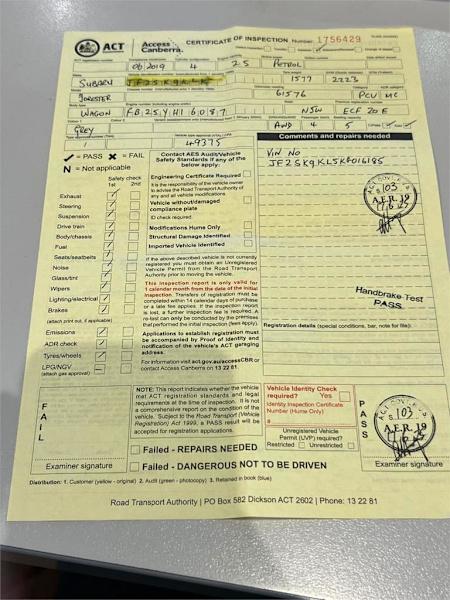 ACT
Access Canberra.
CERTIFICATE OF INSPECTION Number 1756429
06 2019 4 2.5 PETROL
SUBARU 1577 2223
FORESTER 61576 PCU MC
WAGON FB25YH16087 NSW ECF 20E
GREY AWD 4 5
1 49375
✓ = PASS ✗ = FAIL
N = Not applicable
Safety check
1st 2nd
Exhaust
Steering
Suspension
Drive train
Body/chassis
Fuel
Seats/seatbelts
Noise
Glass/tint
Wipers
Lighting/electrical
Brakes
(attach print out, if applicable)
Emissions
ADR check
Tyres/wheels
LPG/NGV
(attach gas approval)
Contact AES Audit/Vehicle
Safety Standards if any of the
below apply.
Engineering Certificate Required
It is the responsibility of the vehicle owner
to advise the Road Transport Authority of
any and all vehicle modifications.
Vehicle without/damaged
compliance plate
ID check required.
Modifications Hume Only
Structural Damage Identified
Imported Vehicle Identified
If the above described vehicle is not currently
registered you must obtain an Unregistered
Vehicle Permit from the Road Transport
Authority prior to moving the vehicle.
This inspection report is only valid for
1 calendar month from the date of the initial
inspection. Transfers of registration must be
completed within 14 calendar days of purchase
or a late fee applies. If the inspection report
is lost, a further inspection fee is required. A
re-test can only be conducted by the premises
that performed the initial inspection (fees apply).
Applications to establish registration must
be accompanied by Proof of Identity and
notification of the vehicle's ACT garaging
address.
For information visit act.gov.au/accessCBR or
contact Access Canberra on 13 22 81
Comments and repairs needed
VIN No
103
A.E.R. 19
Handbrake Test
PASS
Registration details (special conditions, bar, note for file):
FAIL
Examiner signature
NOTE: This report indicates whether the vehicle
met ACT registration standards and legal
requirements at the time of inspection. It is not
a comprehensive report on the condition of
the vehicle. Subject to the Road Transport (Vehicle
Registration) Act 1999, a PASS result will be
accepted for registration applications.
Failed - REPAIRS NEEDED
Failed - DANGEROUS NOT TO BE DRIVEN
Vehicle Identity Check
required? Yes
Identity Inspection Certificate
Number (Hume Only)
#
Unregistered Vehicle
Permit (UVP) required?
Restricted Unrestricted
PASS
103
A.E.R. 19
Examiner signature
Distribution: 1. Customer (yellow - original) 2. Audit (green - photocopy) 3. Retained in book (blue)
Road Transport Authority | PO Box 582 Dickson ACT 2602 | Phone: 13 22 81